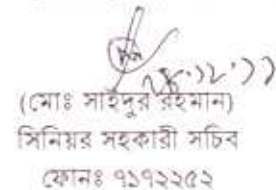 ২৮.১২.১১
(মোঃ সাইদুর রহমান)
সিনিয়র সহকারী সচিব
ফোনঃ ৭১৭২২৫২